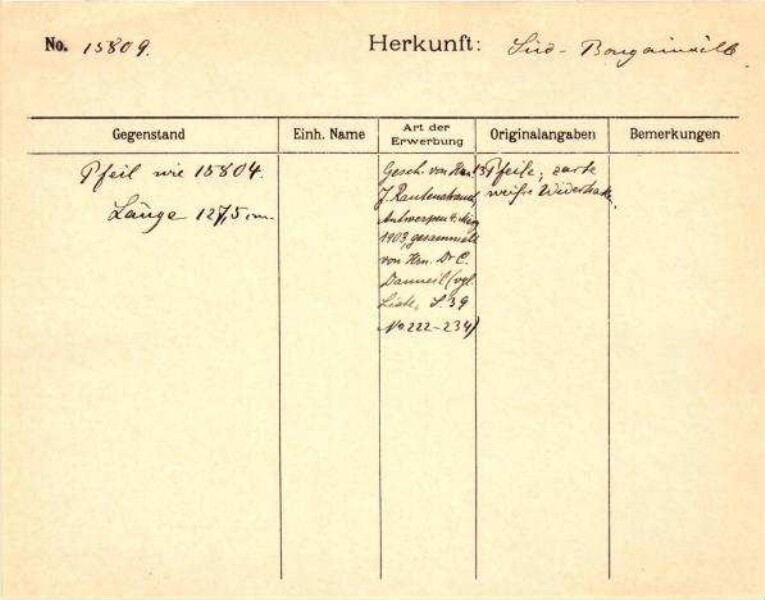 No. 15809. Herkunft: Süd-Bougainville.
Gegenstand Einh. Name Art der Erwerbung Originalangaben Bemerkungen
Pfeil wie 15804.
Länge 127,5 cm.
Gesch. von Hrn.
J. Rautenstrauch,
Antwerpen 4. März
1903, gesammelt
von Hrn. Dr C.
Danneil (vgl.
Liste, S. 39
No 222-234)
13 Pfeile; zarte
weiße Widerhaken